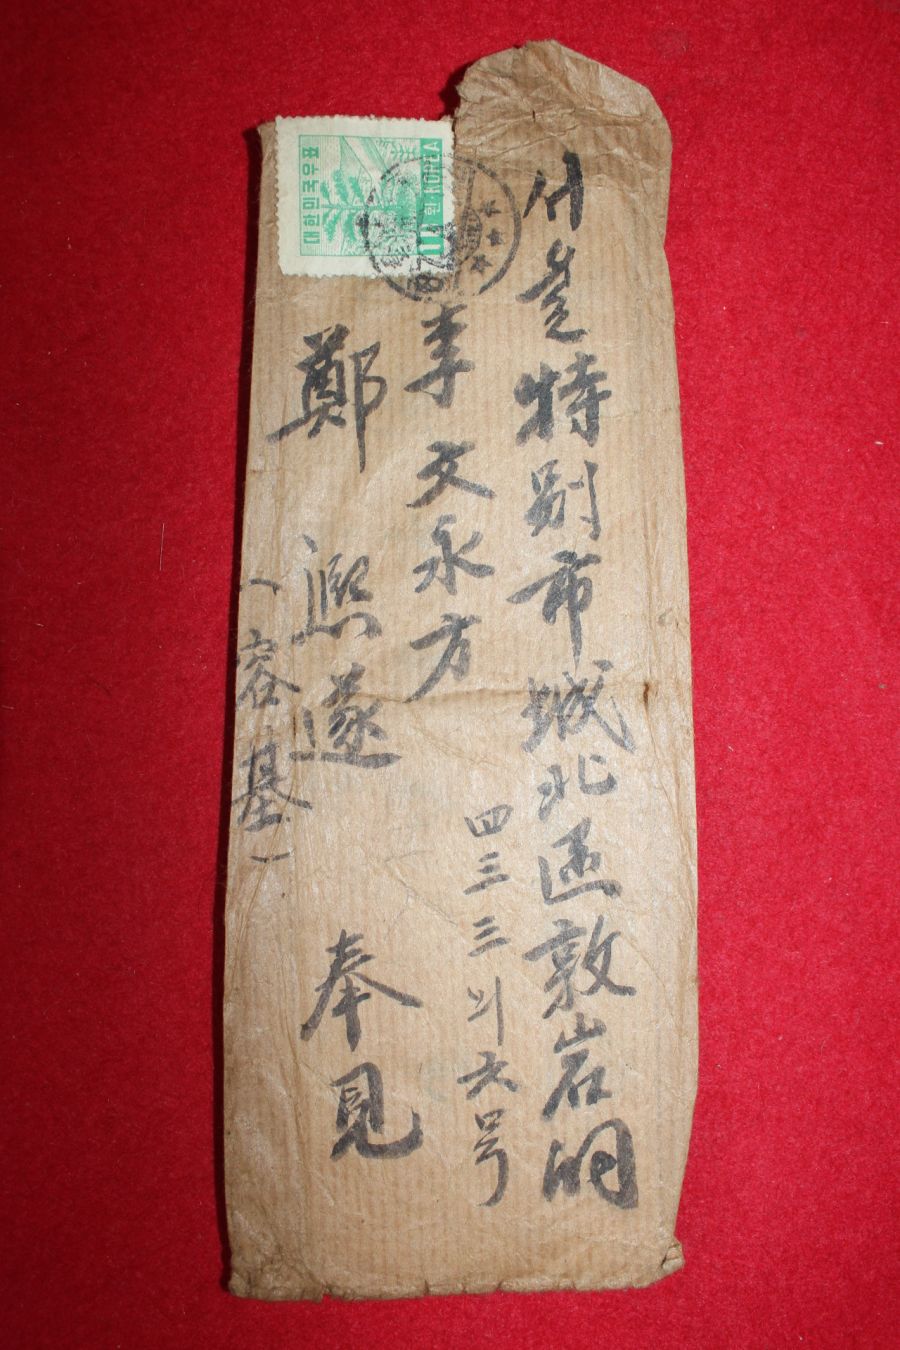 서울特別市城北區敦岩洞
四三三의六号
李文永方
鄭 熙遂 奉見
(容基)
대한민국우표
10 환 KOREA